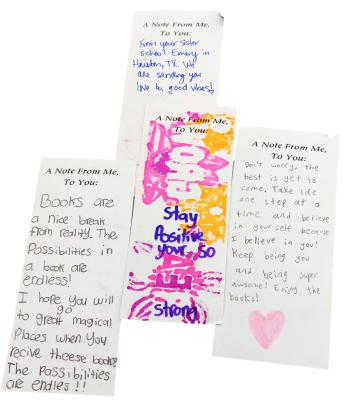 A Note From Me,
To You:
From your sister
school Emery in
Houston, TX. We
are sending you
love & good vibes!
A Note From Me,
To You:
Stay
Positive
your so
Strong
A Note From Me,
To You:
Don't worry, the
best is yet to
come. Take life
one step at a
time and believe
in yourself because
I believe in you!
Keep being you
and being super
awsome! Enjoy the
books!
A Note From Me,
To You:
Books are
a nice break
from reality. The
Possibilities in
a book are
endless!
I hope you will
go
to great magical
Places when you
recive theese books
The Possibilities
are endles!!